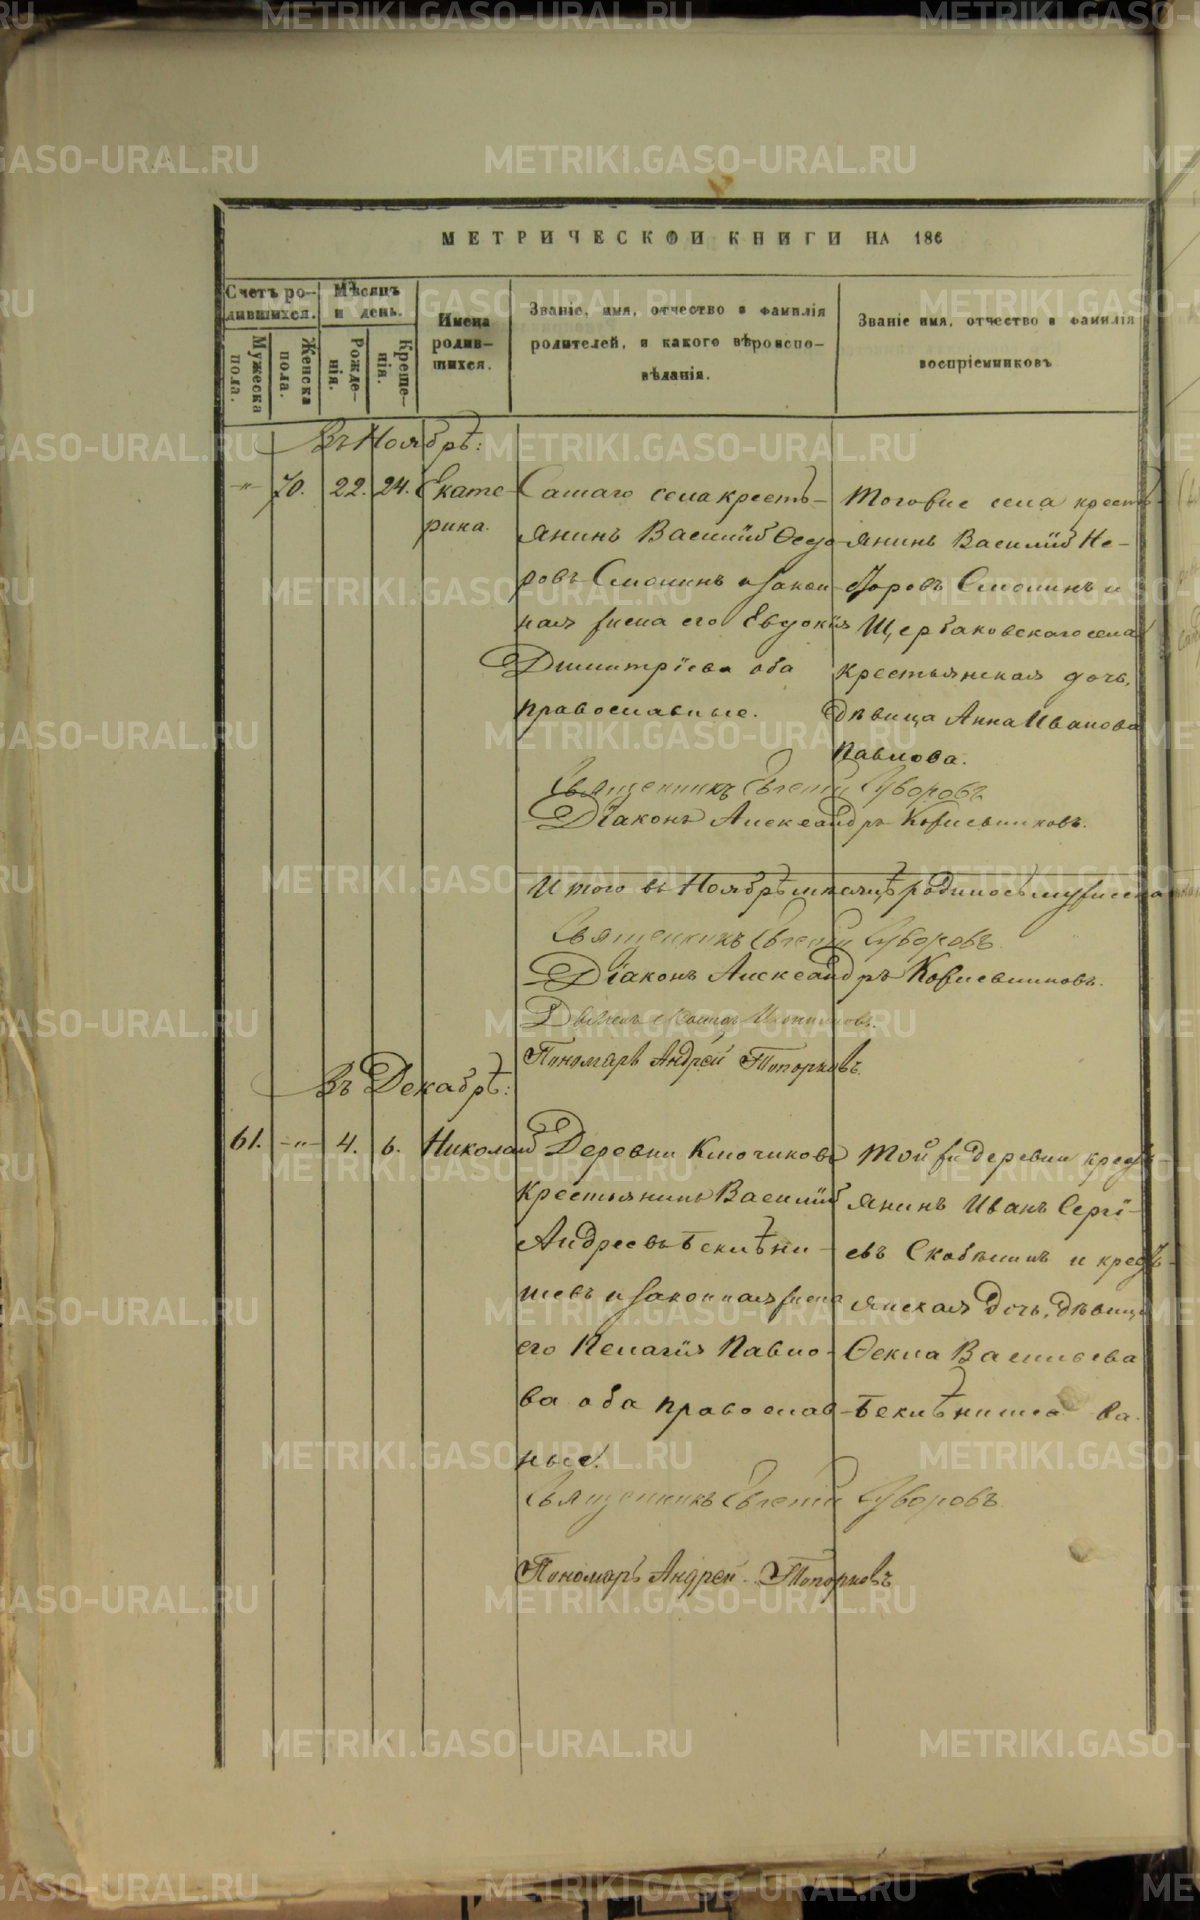 МЕТРИЧЕСКОЙ КНИГИ НА 186
Счетъ ро-
дившихся.
Мѣсяцъ
и день.
Мужеска
пола.
Женска
пола.
Рожде-
нія.
Креще-
нія.
Имена
родив-
шихся.
Званіе, имя, отчество и фамилія
родителей, и какого вѣроиспо-
вѣданія.
Званіе имя, отчество и фамилія
воспріемниковъ
Въ Ноябрѣ:
-"- 70. 22. 24. Екате-
рина.
Самаго села кресть-
янинъ Василій Ѳедо-
ровъ Смолинъ и закон-
ная жена его Евдокія
Димитріева оба
православные.
Того же села кресть-
янинъ Василій
Смолинъ и
Щербаковскаго села
крестьянская дочь,
дѣвица Анна Иванова
Павлова.
Священникъ Евгеній Суворовъ
Діаконъ Александръ Кожевниковъ.
Итого въ Ноябрѣ мѣсяцѣ родилось мужеска
Священникъ Евгеній Суворовъ
Діаконъ Александръ Кожевниковъ.
Пономарь Андрей Топорковъ.
Въ Декабрѣ:
61. -"- 4. 6. Николай
Деревни Ключиковъ
крестьянинъ Василій
Андреевъ Беклѣни-
шевъ и законная жена
его Пелагія Павло-
ва оба православ-
ные.
Той же деревни кресть-
янинъ Иванъ Сергі-
евъ Скобѣлинъ и кресть-
янская дочь, дѣвица
Ѳекла Васильева
Беклѣнишева.
Священникъ Евгеній Суворовъ
Пономарь Андрей Топорковъ
METRIKI.GASO-URAL.RU